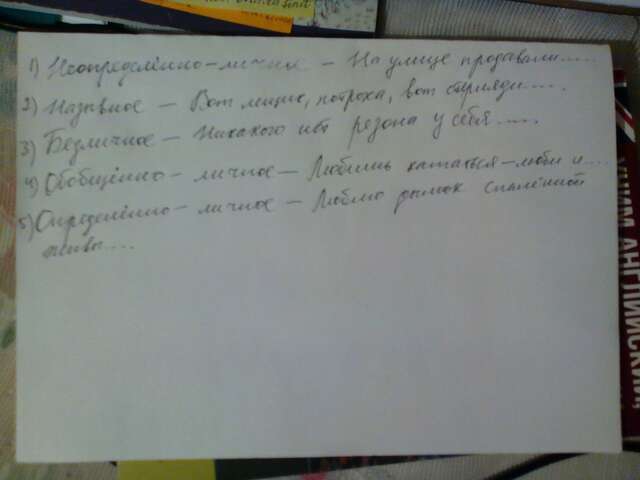 1) Неопределённо-личное - На улице продавали.....
2) Назывное - Вот мицис, потроха, вот стриляди.....
3) Безличное - Никакого нет резона у себя.....
4) Обобщённо-личное - Любишь кататься - люби и....
5) Определённо-личное - Люблю дымок спалённой
жнивы....
УЧИМ АНГЛИЙСКИЙ,